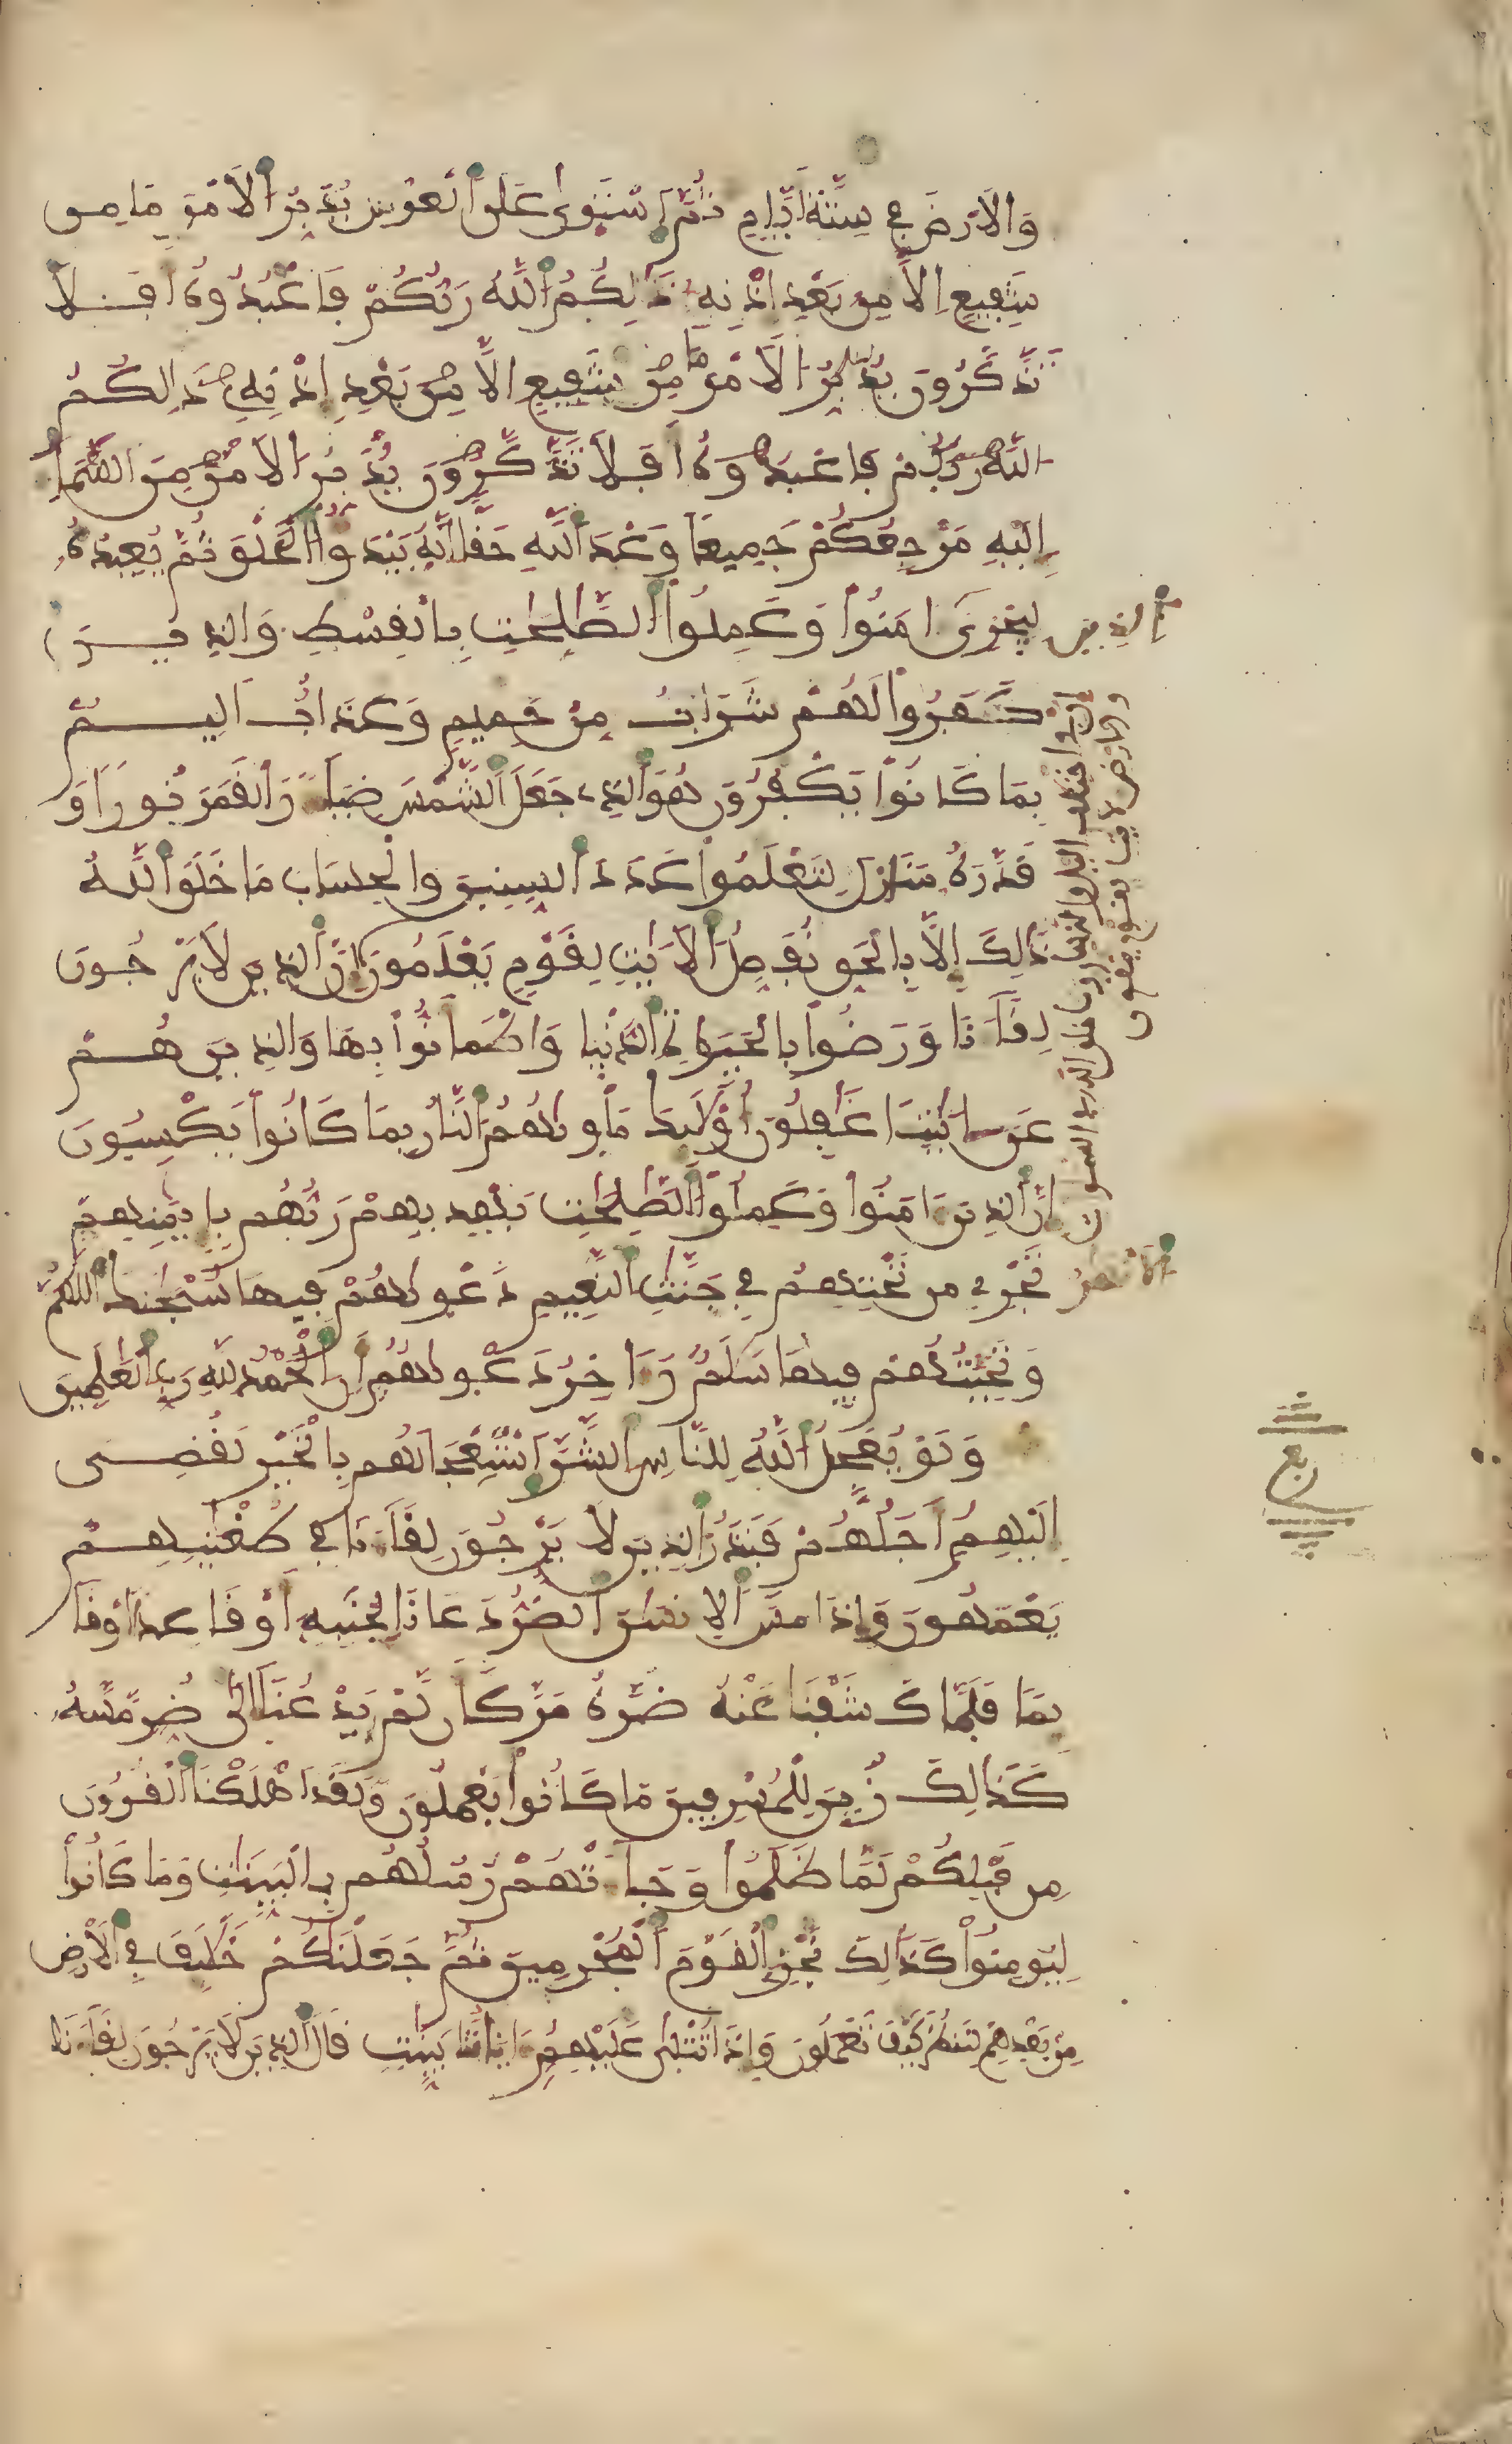 وَالاَرْضَ فِي سِتَّةِ أَيَّامٍ ثُمَّ اَسْتَوَىٰ عَلَى اَلْعَرْشِ يُدَبِّرُ اُلاَمْرَ مَا مِن
شَفِيعٍ اِلاَّ مِن بَعْدِ إِذْنِهِ ذَٰلِكُمُ اُللَّهُ رَبُّكُمْ فَاعْبُدُوهُ أَفَلاَ
تَذَّكَّرُونَ يُدَبِّرُ اَلاَمْرَ مَا مِن شَفِيعٍ اِلاَّ مِن بَعْدِ إِذْنِهِ ذَٰلِكُمُ
اللَّهُ رَبُّكُمْ فَاعْبُدُوهُ أَفَلاَ تَذَّكَّرُونَ يُدَبِّرُ اَلاَمْرَ مِنَ السَّمَا
إِلَيْهِ مَرْجِعُكُمْ جَمِيعاً وَعْدَ اَللَّهِ حَقّاً اِنَّهُ يَبْدَؤُاْ الْخَلْقَ ثُمَّ يُعِيدُهُ
لِيَجْزِيَ الذِينَ ءَامَنُواْ وَعَمِلُواْ اُلصَّٰلِحَٰتِ بِالْقِسْطِ وَالذِيـــنَ
كَفَرُواْ لَهُمْ شَرَابٌ مِّنْ حَمِيمٍ وَعَذَابٌ اَلِيـــمٌ
بِمَا كَانُواْ يَكْفُرُونَ هُوَ اَلذِي جَعَلَ اَلشَّمْسَ ضِيَآءً وَالْقَمَرَ نُوراً وَ
قَدَّرَهُ مَنَازِلَ لِتَعْلَمُواْ عَدَدَ اَلسِّنِينَ وَالْحِسَابَ مَا خَلَقَ اَللَّهُ
ذَٰلِكَ إِلاَّ بِالْحَقِّ نُفَصِّلُ اُلاَيَٰتِ لِقَوْمٍ يَعْلَمُونَ
إِنَّ فِي اخْتِلَٰفِ اليْلِ وَالنَّهَارِ وَمَا خَلَقَ اللَّهُ فِي السَّمَٰوَٰتِ
وَالاَرْضِ لأَيَٰتٍ لِّقَوْمٍ يَتَّقُونَ
إِنَّ اَلذِينَ لاَ يَرْجُونَ
لِقَآءَنَا وَرَضُواْ بِالْحَيَوٰةِ اِلدُّنْيَا وَاطْمَأَنُّواْ بِهَا وَالذِينَ هُـــمْ
عَنَ ايَٰتِنَا غَٰفِلُونَ أُوْلَٰئِكَ مَأْوَىٰهُمُ اُلنَّارُ بِمَا كَانُواْ يَكْسِبُونَ
إِنَّ اَلذِينَ ءَامَنُواْ وَعَمِلُواْ اُلصَّٰلِحَٰتِ يَهْدِيهِمْ رَبُّهُم بِإِيمَٰنِهِمْ
تَجْرِي مِن تَحْتِهِمُ الاَنْهَٰرُ فِي جَنَّٰتِ اِلنَّعِيمِ دَعْوَىٰهُمْ فِيهَا سُبْحَٰنَكَ اَللَّهُمَّ
وَتَحِيَّتُهُمْ فِيهَا سَلَٰمٌ وَءَاخِرُ دَعْوَىٰهُمُ أَنِ اِلْحَمْدُ لِلَّهِ رَبِّ اِلْعَٰلَمِينَ
وَلَوْ يُعَجِّلُ اُللَّهُ لِلنَّاسِ اِلشَّرَّ اَسْتِعْجَالَهُم بِالْخَيْرِ لَقُضِـــيَ
إِلَيْهِمُ أَجَلُهُمْ فَنَذَرُ اُلذِينَ لاَ يَرْجُونَ لِقَآءَنَا فِي طُغْيَٰنِهِـــمْ
يَعْمَهُونَ وَإِذَا مَسَّ اَلاِنسَٰنَ اَلضُّرُّ دَعَانَا لِجَنبِهِ أَوْ قَاعِداً اَوْ قَآ
ئِماً فَلَمَّا كَشَفْنَا عَنْهُ ضُرَّهُ مَرَّ كَأَن لَّمْ يَدْعُنَا إِلَىٰ ضُرٍّ مَّسَّهُ
كَذَٰلِكَ زُيِّنَ لِلْمُسْرِفِينَ مَا كَانُواْ يَعْمَلُونَ وَلَقَدَ اَهْلَكْنَا اَلْقُرُونَ
مِن قَبْلِكُمْ لَمَّا ظَلَمُواْ وَجَآءَتْهُمْ رُسُلُهُم بِالْبَيِّنَٰتِ وَمَا كَانُواْ
لِيُومِنُواْ كَذَٰلِكَ نَجْزِي اِلْقَوْمَ اَلْمُجْرِمِينَ ثُمَّ جَعَلْنَٰكُمْ خَلَٰٓئِفَ فِي اِلاَرْضِ
مِنْ بَعْدِهِمْ لِنَنظُرَ كَيْفَ تَعْمَلُونَ وَإِذَا تُتْلَىٰ عَلَيْهِمُ ءَايَاتُنَا بَيِّنَٰتٍ قَالَ اَلذِينَ لاَ يَرْجُونَ لِقَآءَنَا
ربع